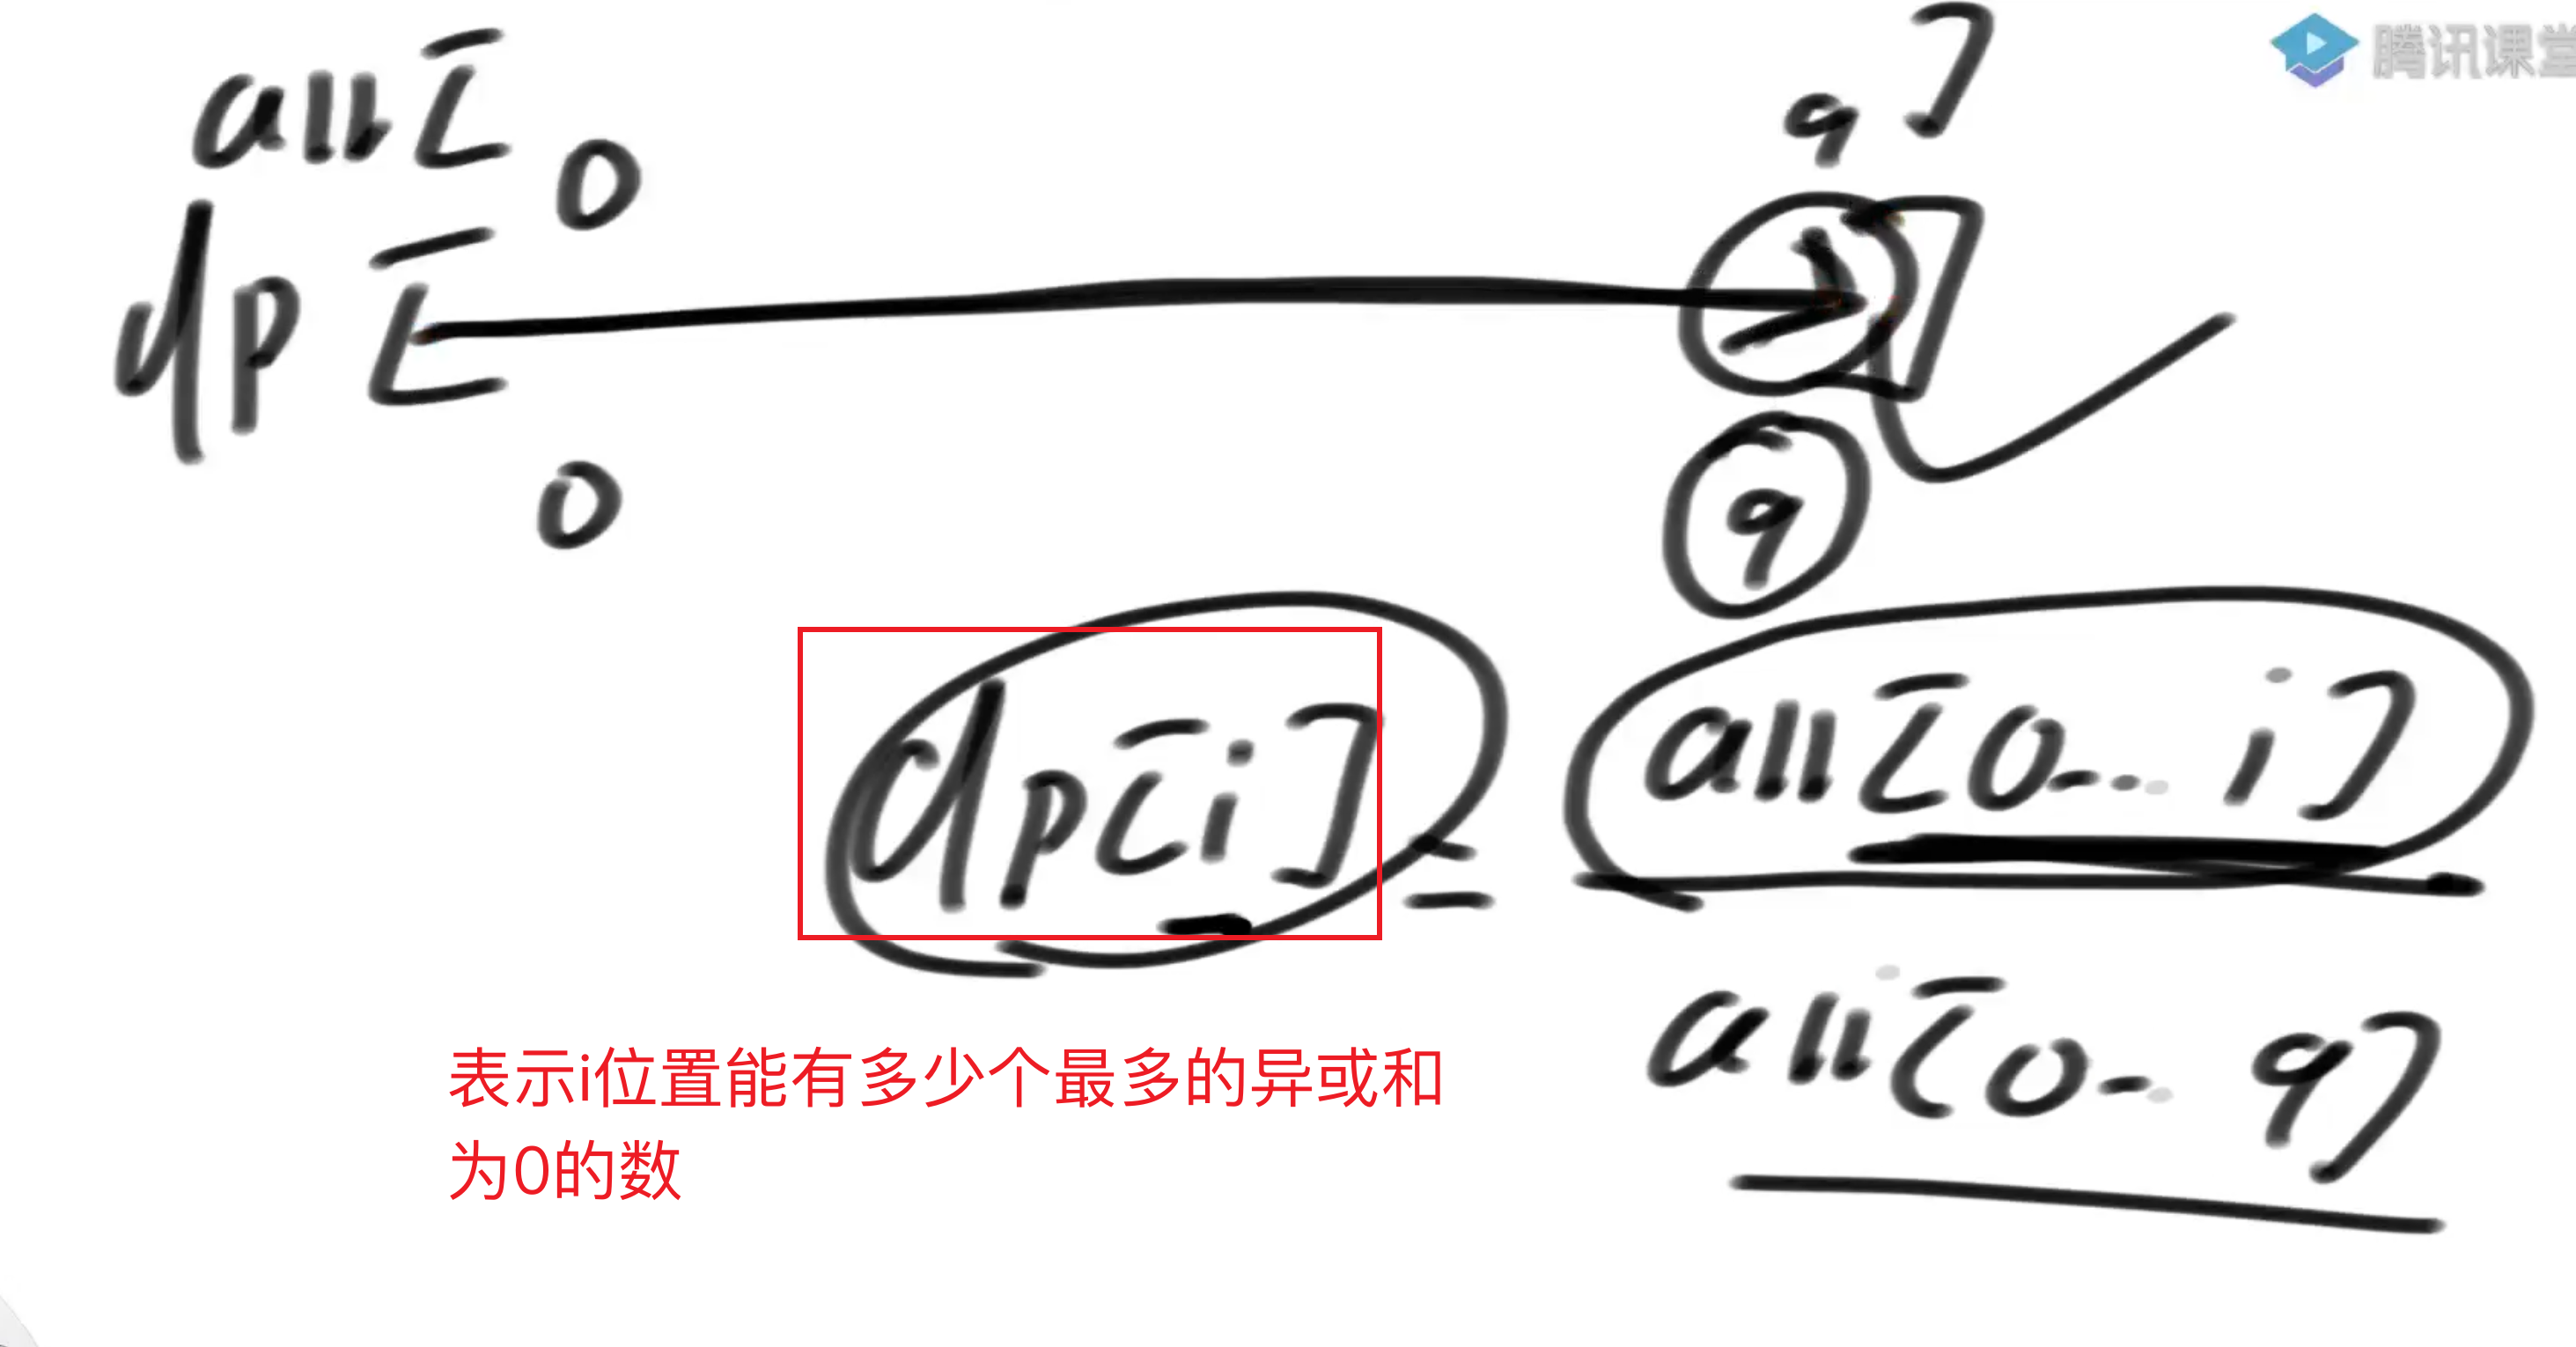 腾讯课堂
all[ 0 9 ]
dp [ ]
0 9
dp[i] = all[0... i]
all[0-- 9]
表示i位置能有多少个最多的异或和
为0的数